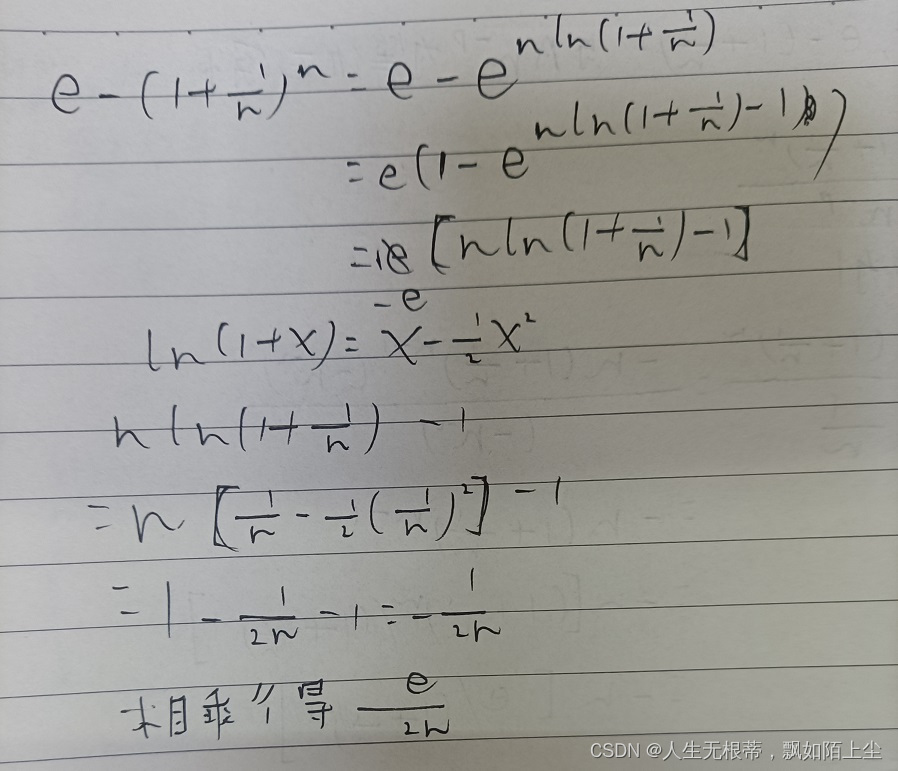 e - (1+1/n)^n = e - e^(n ln(1+1/n))
= e(1 - e^(n ln(1+1/n)-1))
= e [n ln(1+1/n) - 1]
-e
ln(1+x) = x - 1/2 x²
n ln(1+1/n) - 1
= n [1/n - 1/2 (1/n)²] - 1
= 1 - 1/2n - 1 = - 1/2n
相乘 得 e/2n
CSDN @人生无根蒂，飘如陌上尘